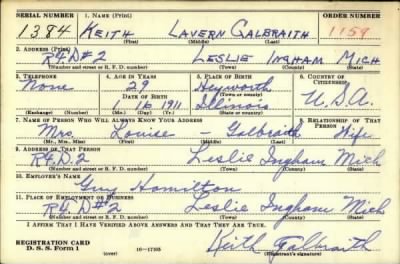 SERIAL NUMBER 1. NAME (Print) ORDER NUMBER
1384 KEITH LAVERN GALBRAITH 1159
(First) (Middle) (Last)
2. ADDRESS (Print)
R4D#2 LESLIE INGHAM MICH
(Number and street or R. F. D. number) (Town) (County) (State)
3. TELEPHONE 4. AGE IN YEARS 5. PLACE OF BIRTH 6. COUNTRY OF CITIZENSHIP
None 29 Heyworth
DATE OF BIRTH (Town or county)
1 16 1911 Illinois U.S.A.
(Exchange) (Number) (Mo.) (Day) (Yr.) (State or country)
7. NAME OF PERSON WHO WILL ALWAYS KNOW YOUR ADDRESS 8. RELATIONSHIP OF THAT PERSON
Mrs. Louise - Galbraith Wife
(Mr., Mrs., Miss) (First) (Middle) (Last)
9. ADDRESS OF THAT PERSON
R4.D.2 Leslie Ingham Mich
(Number and street or R. F. D. number) (Town) (County) (State)
10. EMPLOYER'S NAME
Guy Hamilton
11. PLACE OF EMPLOYMENT OR BUSINESS
R4D#2 Leslie Ingham Mich
(Number and street or R. F. D. number) (Town) (County) (State)
I AFFIRM THAT I HAVE VERIFIED ABOVE ANSWERS AND THAT THEY ARE TRUE.
REGISTRATION CARD
D. S. S. Form 1 (over) 16—17105 Keith Galbraith
(Registrant's signature)